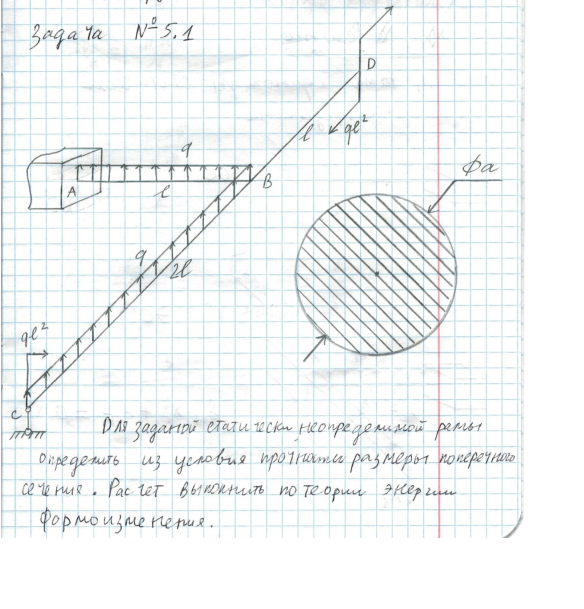 Задача №5.1
D
ql²
l
q
A
l
B
Фa
q
2l
ql²
C
Для заданой статически неопределимой рамы
определить из условия прочности размеры поперечного
сечения. Расчет выполнить по теории энергии
формоизменения.